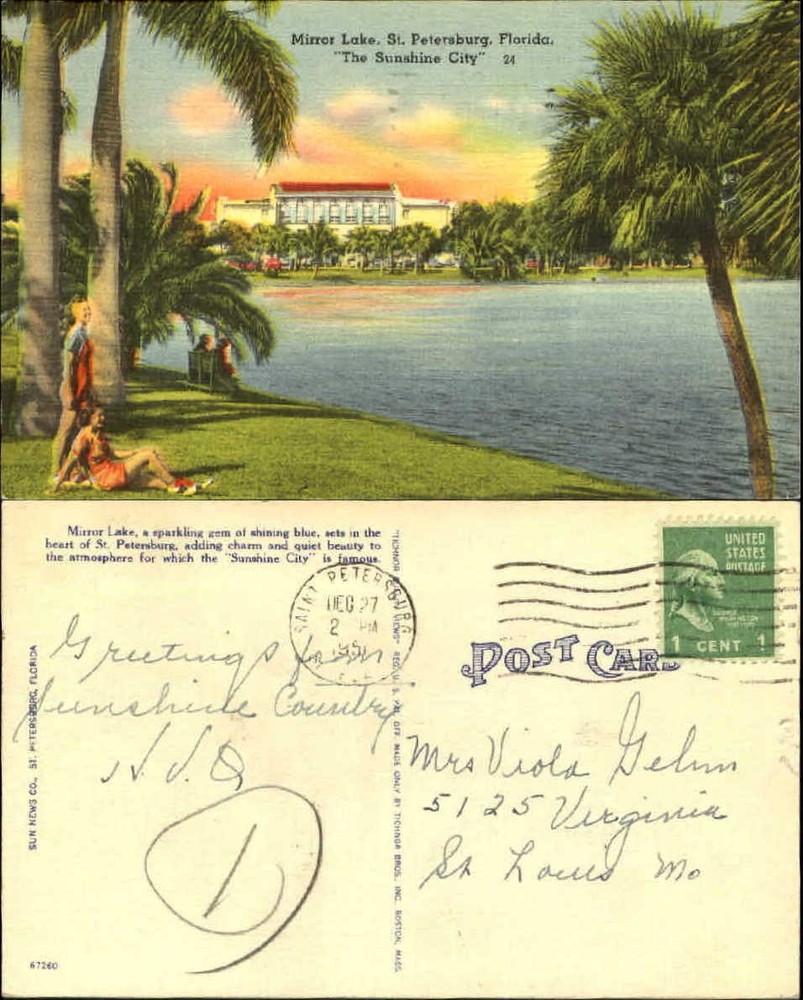 Mirror Lake, St. Petersburg, Florida,
"The Sunshine City" 24
Mirror Lake, a sparkling gem of shining blue, sets in the
heart of St. Petersburg, adding charm and quiet beauty to
the atmosphere for which the "Sunshine City" is famous.
SAINT PETERSBURG
DEC 27
2 PM
1951
UNITED
STATES
POSTAGE
WASHINGTON
1 CENT 1
POST CARD
Greetings from
Sunshine Country
Mrs Viola Gehm
5125 Virginia
St Louis Mo
1
SUN NEWS CO., ST. PETERSBURG, FLORIDA
"TICHNOR VIEWS" REG. U. S. PAT. OFF. MADE ONLY BY TICHNOR BROS., INC., BOSTON, MASS.
67260